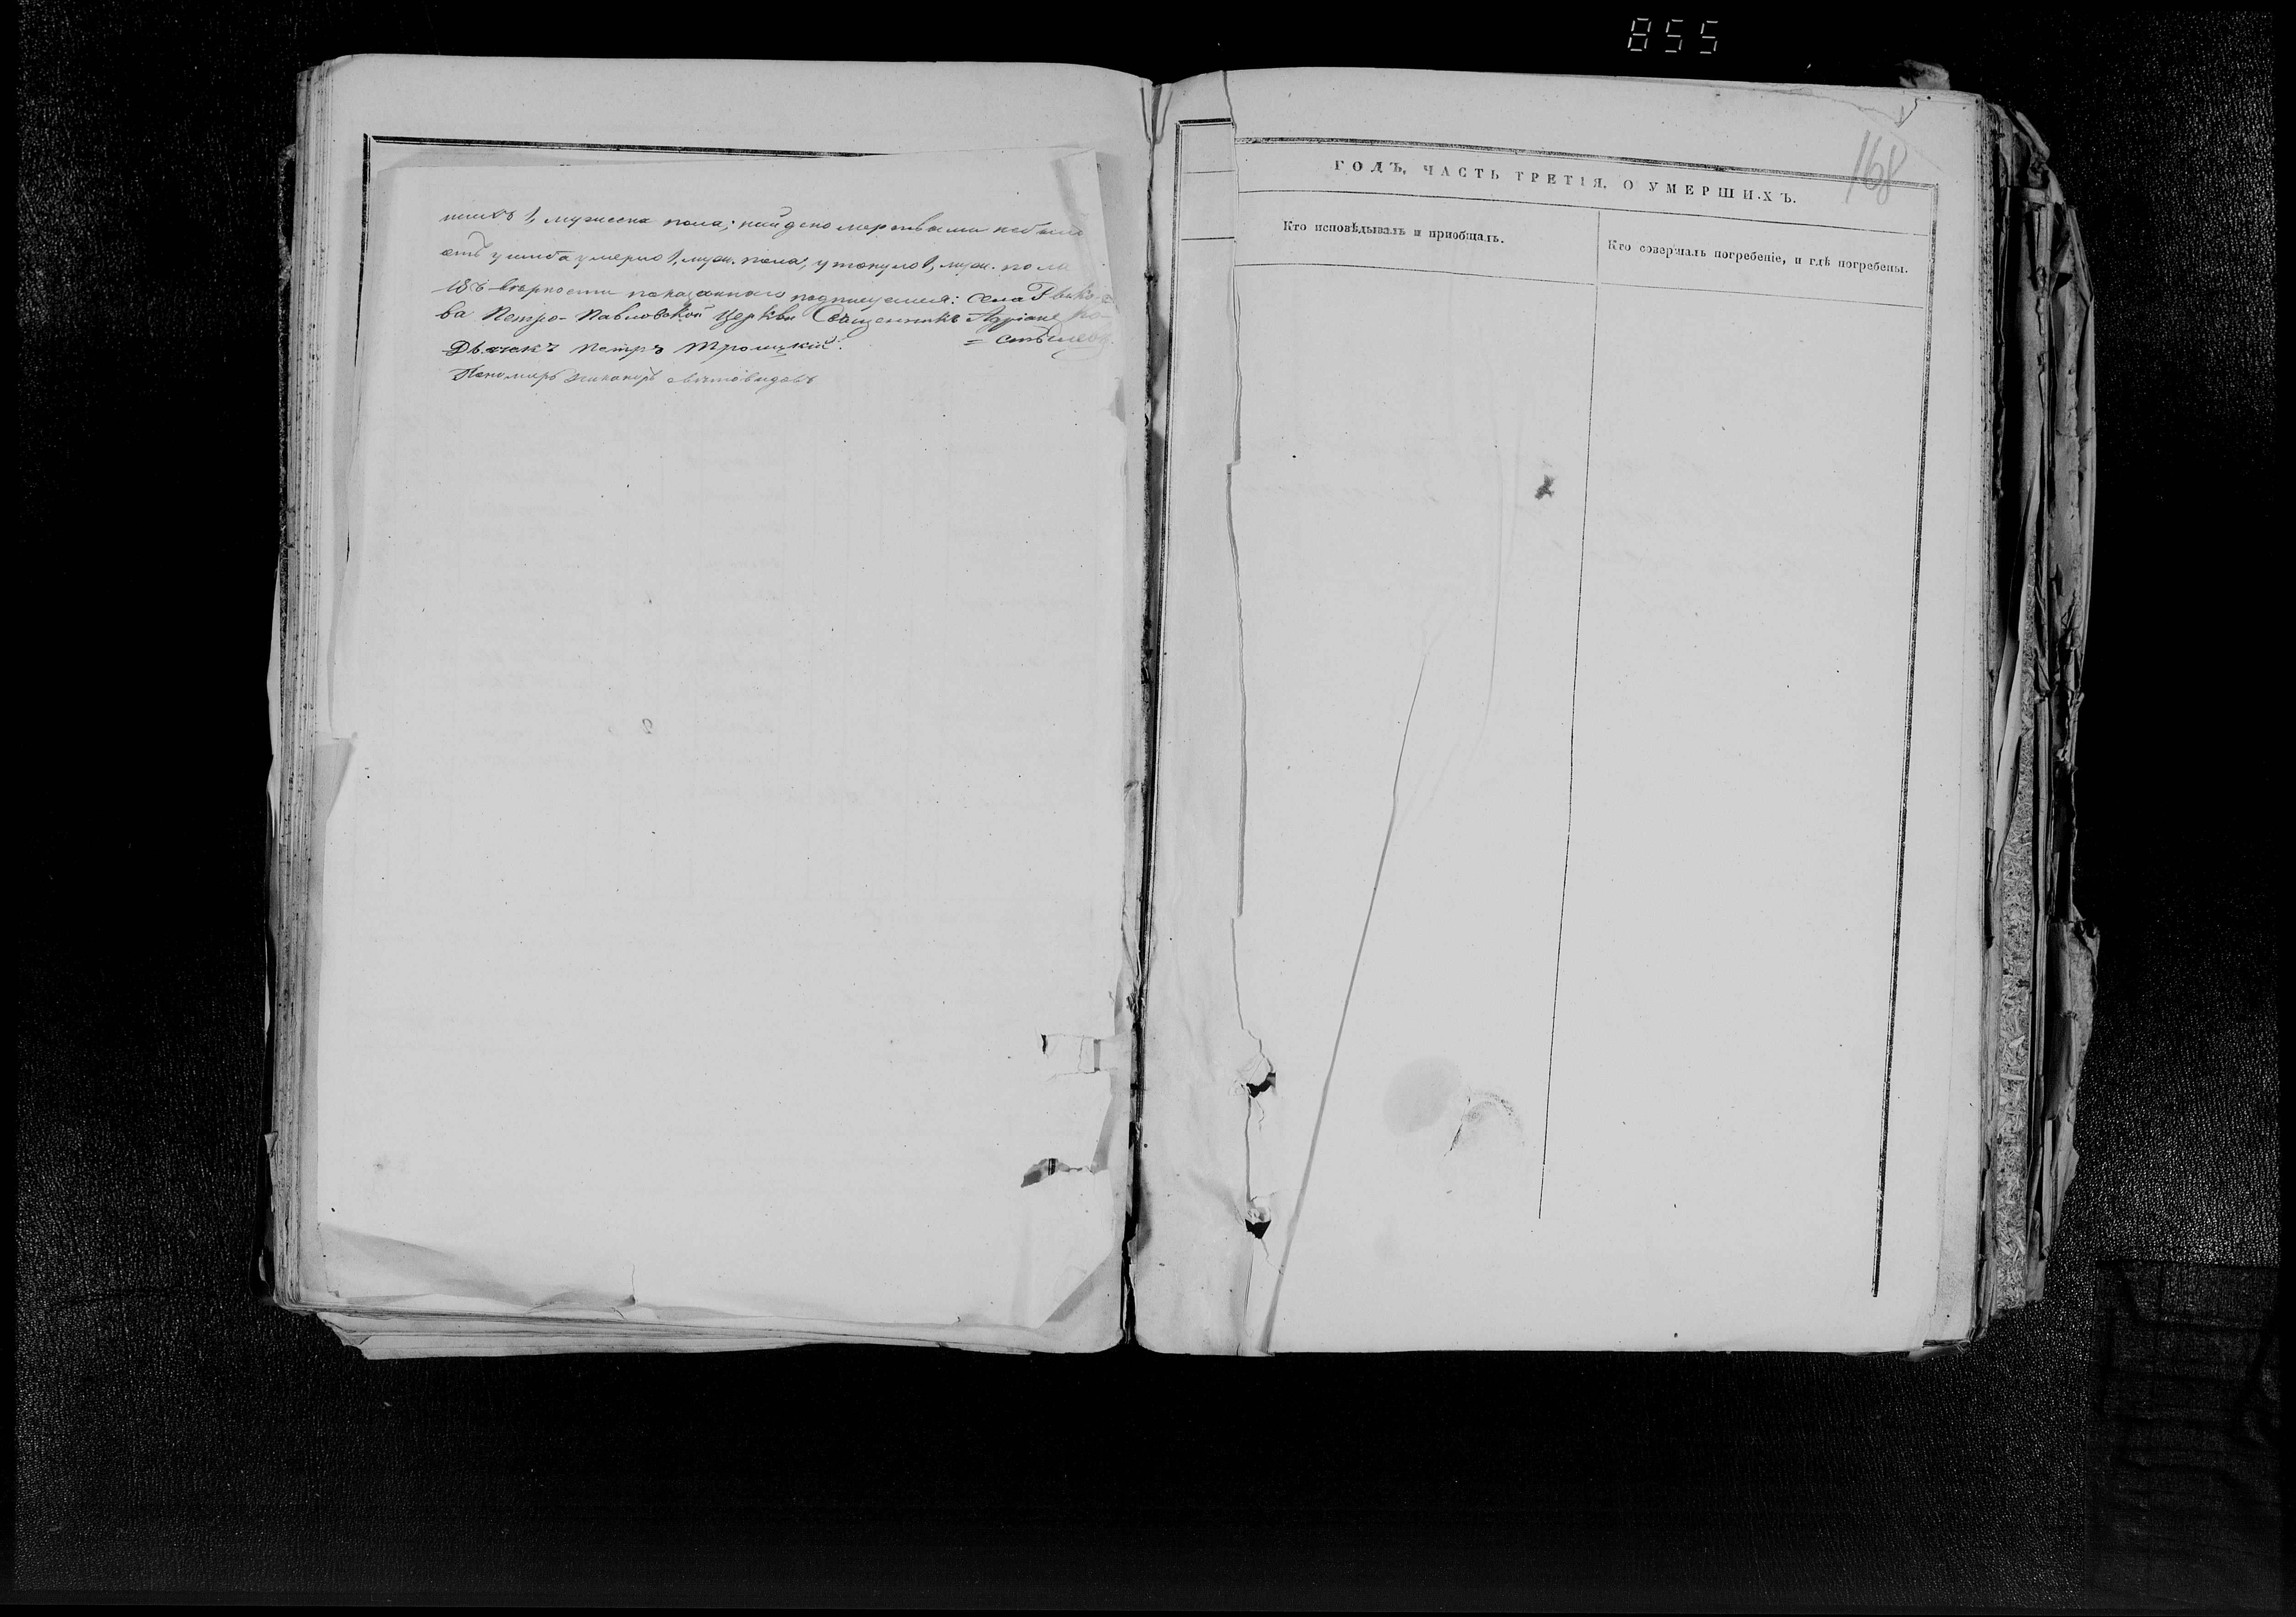 855
168
1, мужеска пола; найдено мертвыми небыло
отъ ушиба умерло 1, муж. пола, утонуло 1, муж. пола
Въ верности показаннаго подписуемся: села
ва Петро-Павловской Церкви Священникъ Адріанъ
Дьячекъ Петръ Троицкій.
Пономарь Никаноръ
ГОДЪ, ЧАСТЬ ТРЕТІЯ, О УМЕРШИХЪ.
Кто исповѣдывалъ и пріобщалъ.
Кто совершалъ погребеніе, и гдѣ погребены.